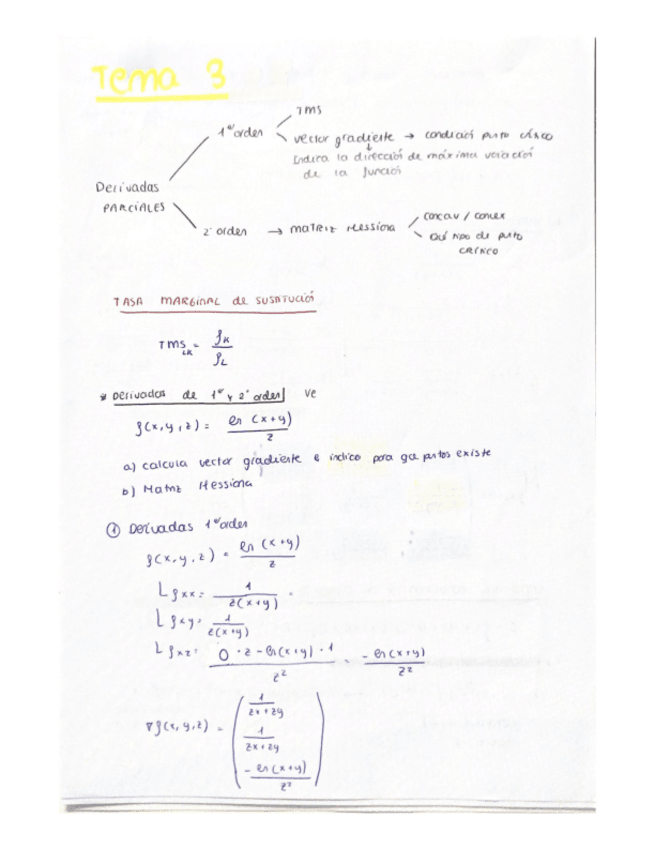 Tema 3
TMS
1er orden
vector gradiente → condición punto crítico
Indica la dirección de máxima variación
de la función
Derivadas
PARCIALES
2º orden → MATRIZ Hessiana
concav / convex
Qué tipo de punto
CRÍTICO
TASA MARGINAL de SUSTITUCIÓ
TMS LK = fK / fL
* Derivadas de 1er y 2º orden
f(x,y,z) = ln (x+y) / z
a) calcula vector gradiente e indica para qa puntos existe
b) Matriz Hessiana
① Derivadas 1er orden
f(x,y,z) = ln (x+y) / z
L fxx = 1 / z(x+y)
L fxy = 1 / z(x+y)
L fxz = 0 · z - ln(x+y) · 1 / z² = - ln(x+y) / z²
∇f(x,y,z) = ( 1 / zx+zy
1 / zx+zy
- ln(x+y) / z² )